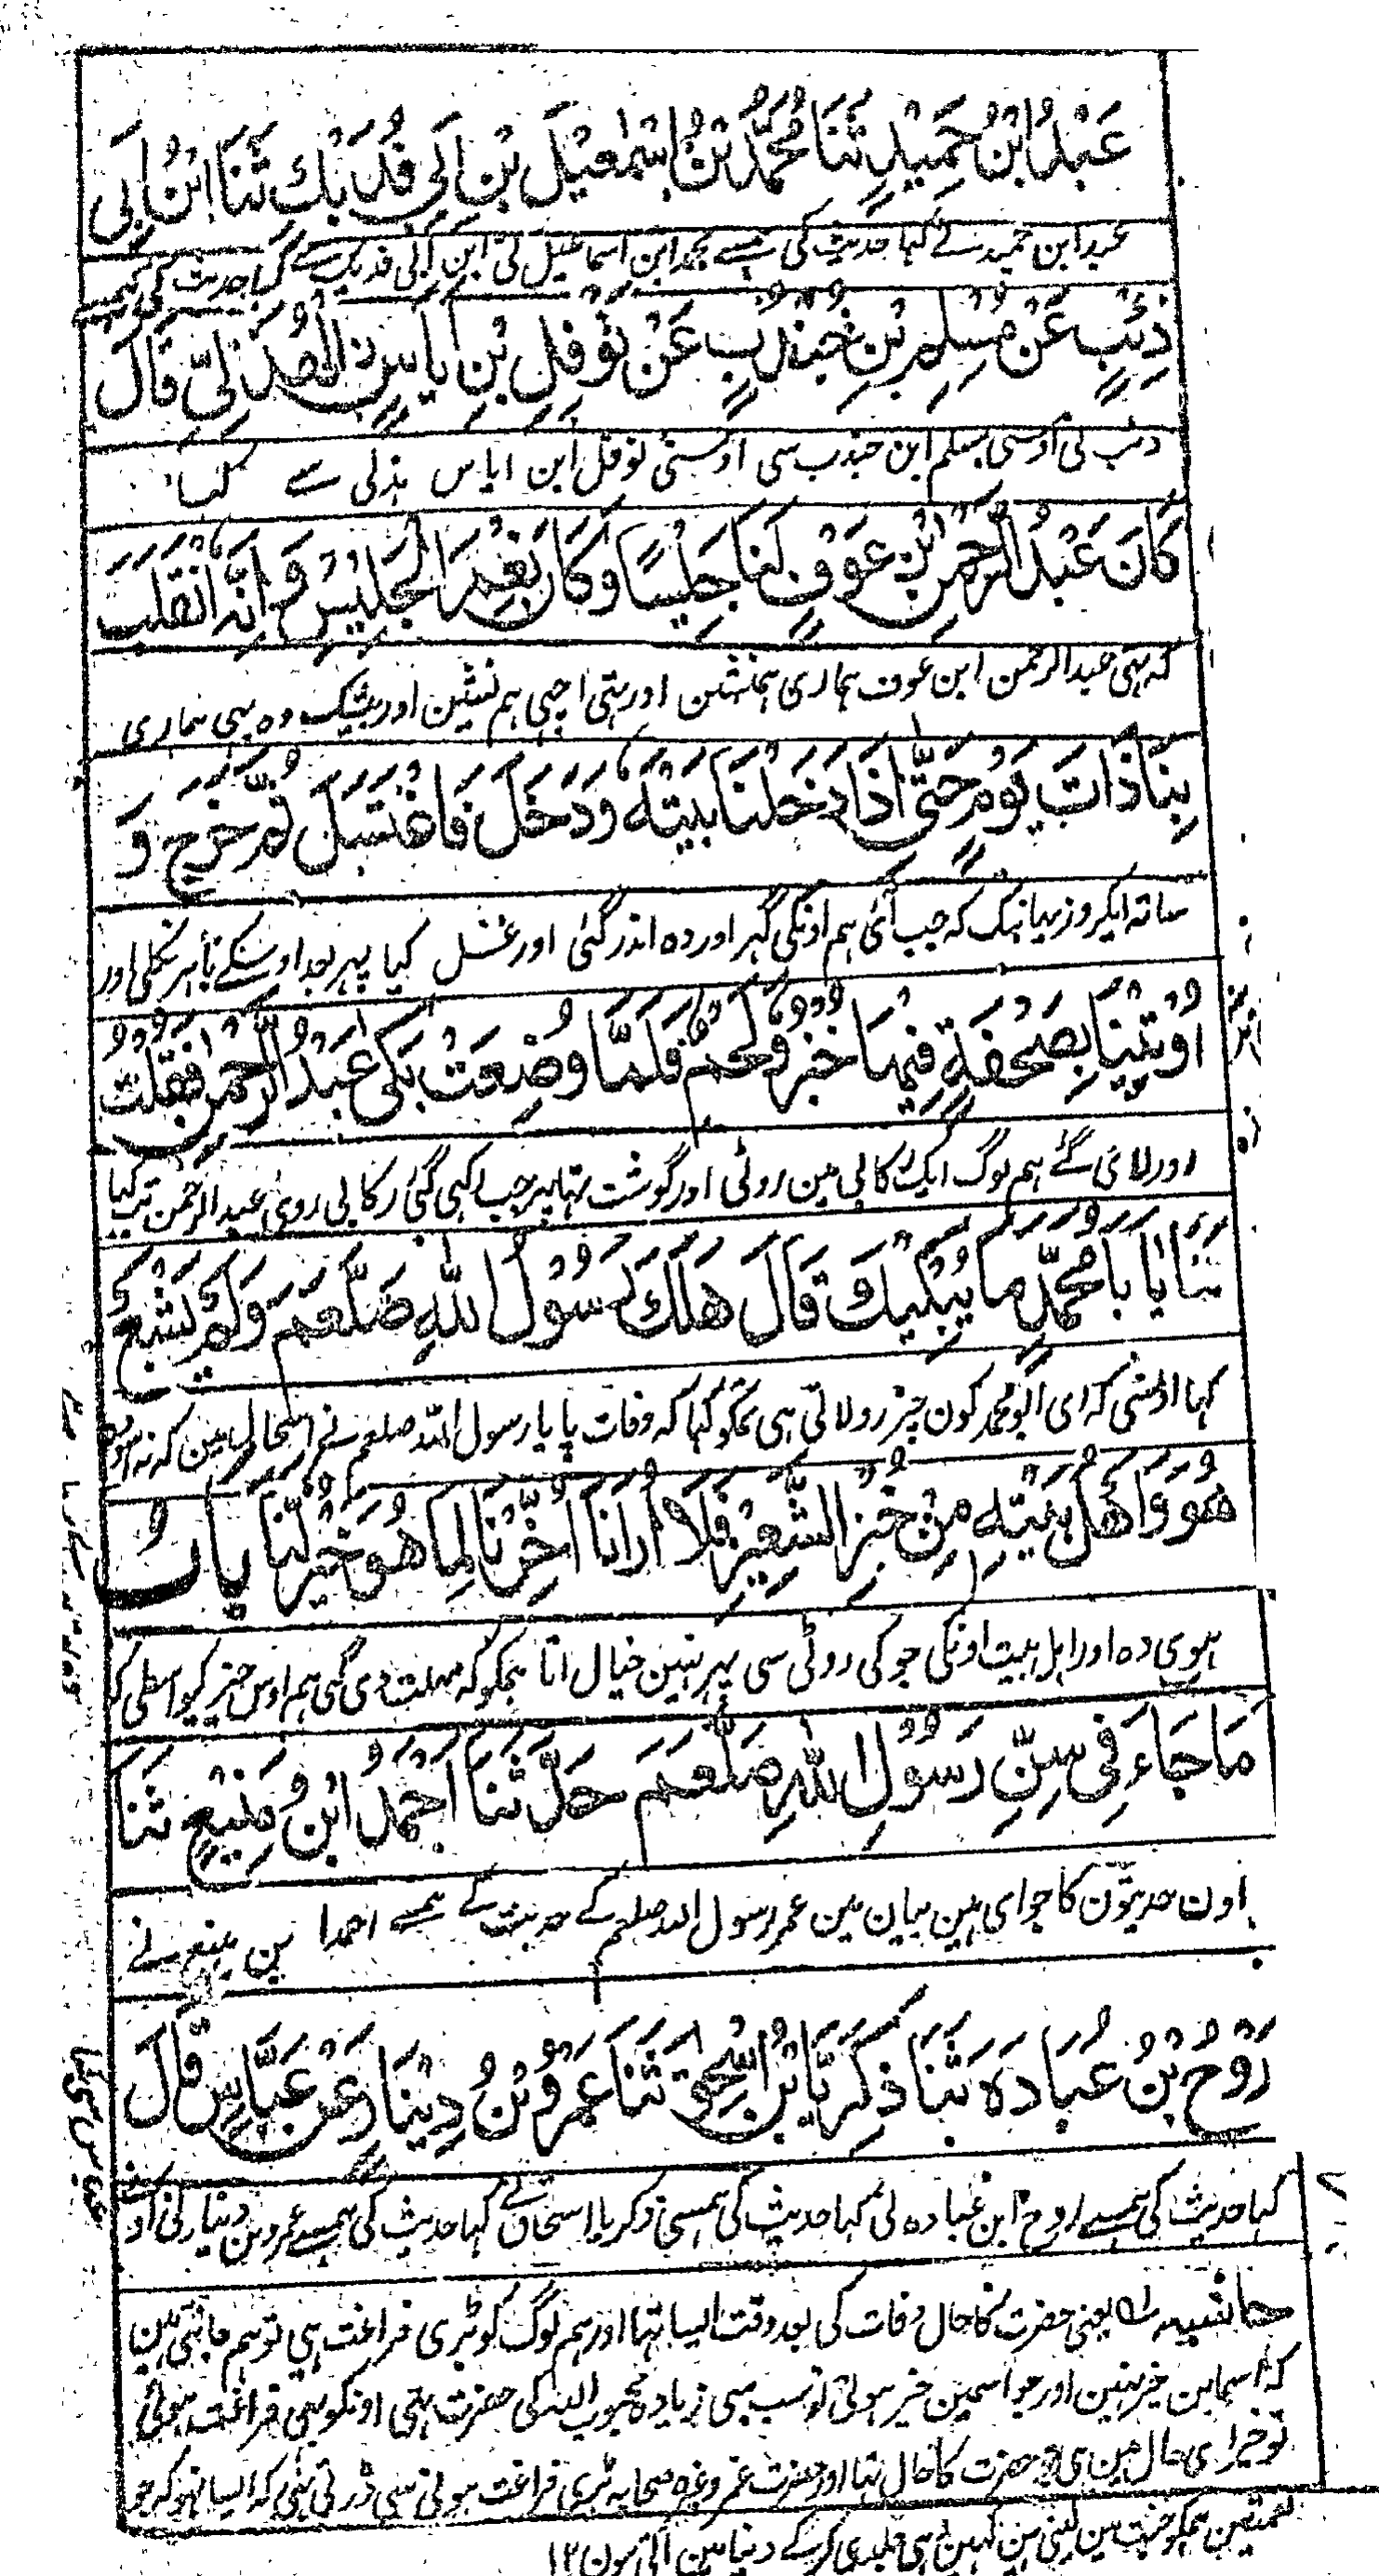 عَبْدُ ابْنُ حُمَيْدٍ ثَنَا مُحَمَّدُ بْنُ اِسْمٰعِيْلَ بْنِ اَبِيْ فُدَيْكٍ ثَنَا ابْنُ اَبِيْ
عبد ابن حمید نے کہا حدیث کی ہمسے محمد ابن اسماعیل نی ابن ابی فدیک سے کہا حدیث کی ہمسے
ذِئْبٍ عَنْ مُسْلِمِ بْنِ جُنْدُبٍ عَنْ نَوْفِلِ بْنِ اَيَاسِ نِ الْهُذَلِيِّ قَالَ
ذئب نی اوسی مسلم ابن جندب سی اوسنی نوفل ابن ایاس ہذلی سے کہا
كَانَ عَبْدُ الرَّحْمٰنِ ابْنِ عَوْفٍ لَنَا جَلِيْسًا وَكَانَ نِعْمَ الْجَلِيْسُ وَاِنَّهُ انْقَلَبَ
کہ تہی عبدالرحمن ابن عوف ہماری ہمنشین اور تہی اچہی ہم نشین اور بیشک وہ پہری ہماری
بِنَا ذَاتَ يَوْمٍ حَتّٰى اِذَا دَخَلْنَا بَيْتَهٗ وَدَخَلَ فَاغْتَسَلَ ثُمَّ خَرَجَ وَ
ساتہ ایکروز یہانتک کہ جب آئی ہم اونکی گہر اور وہ اندر گئی اور غسل کیا پہر بعد اوسکے باہر نکلی اور
اُوْتِيْنَا بِصَحْفَةٍ فِيْهَا خُبْزٌ وَلَحْمٌ فَلَمَّا وُضِعَتْ بَكٰى عَبْدُ الرَّحْمٰنِ فَقُلْتُ
اور لائی گئے ہم لوگ ایک رکابی مین روٹی اور گوشت تہا پہر جب رکہی گئی رکابی روئی عبدالرحمن تب کیا
يَا بَا مُحَمَّدٍ مَا يُبْكِيْكَ قَالَ هَلَكَ رَسُوْلُ اللهِ صَلَّعَمَ وَلَمْ يَشْبَعْ
کہا اونسی کہ ای ابو محمد کون چیز رولاتی ہی تمکو کہا کہ وفات پایا رسول اللہ صلعم نے اس حالمین کہ نہ اسودہ
هُوَ وَاَهْلُ بَيْتِهٖ مِنْ خُبْزِ الشَّعِيْرِ فَلَا اُرَانَا اُخِّرْنَا لِمَا هُوَ خَيْرٌ لَنَا بَابُ
ہوی وہ اور اہل بیت اونکی جو کی روٹی سی پہر نہین خیال اتا مجکو کہ مہلت دی گئی ہم اوس چیز کیواسطی کہ
مَا جَاءَ فِيْ سِنِّ رَسُوْلِ اللهِ صَلَّعَمَ حَدَّثَنَا اَحْمَدُ ابْنُ مَنِيْعٍ ثَنَا
اون حدیثون کا جو ای ہین بیان مین عمر رسول اللہ صلعم کے حدیث کے ہمسے احمد ابن منیع نے
رَوْحُ بْنُ عُبَادَهَ ثَنَا ذَكَرِيَّا بْنُ اِسْحٰقَ ثَنَا عَمَرُو بْنُ دِيْنَارٍ عَنِ عَبَّاسٍ قَالَ
کہا حدیث کی ہمسے روح ابن عبادہ نی کہا حدیث کی ہمسی ذکریا اسحاق نے کہا حدیث کی ہمسے عمرو بن دینار نی
حاشیہ یعنی حضرت کا حال وفات کی بعد وقت ایسا تہا اور ہم لوگ کو بڑی فراغت ہی تو ہم جانتی ہین
کہ اسمین خیر نہین اور جو اسمین خیر ہوتی تو سب سی زیادہ محبوب اللہ کی حضرت تہی اونکو بہی فراغت ہوتی
تو خیر اسی حال مین ہی جو حضرت کا حال تہا اور حضرت عمر وغیرہ صحابہ بڑی فراغت ہونی سی ڈرتی تہی کہ ایسا نہو کہ جو
نعمتین ہمکو جنت مین ملینی ہین کہین اسی جلدی کر کے دنیا مین ۱۲